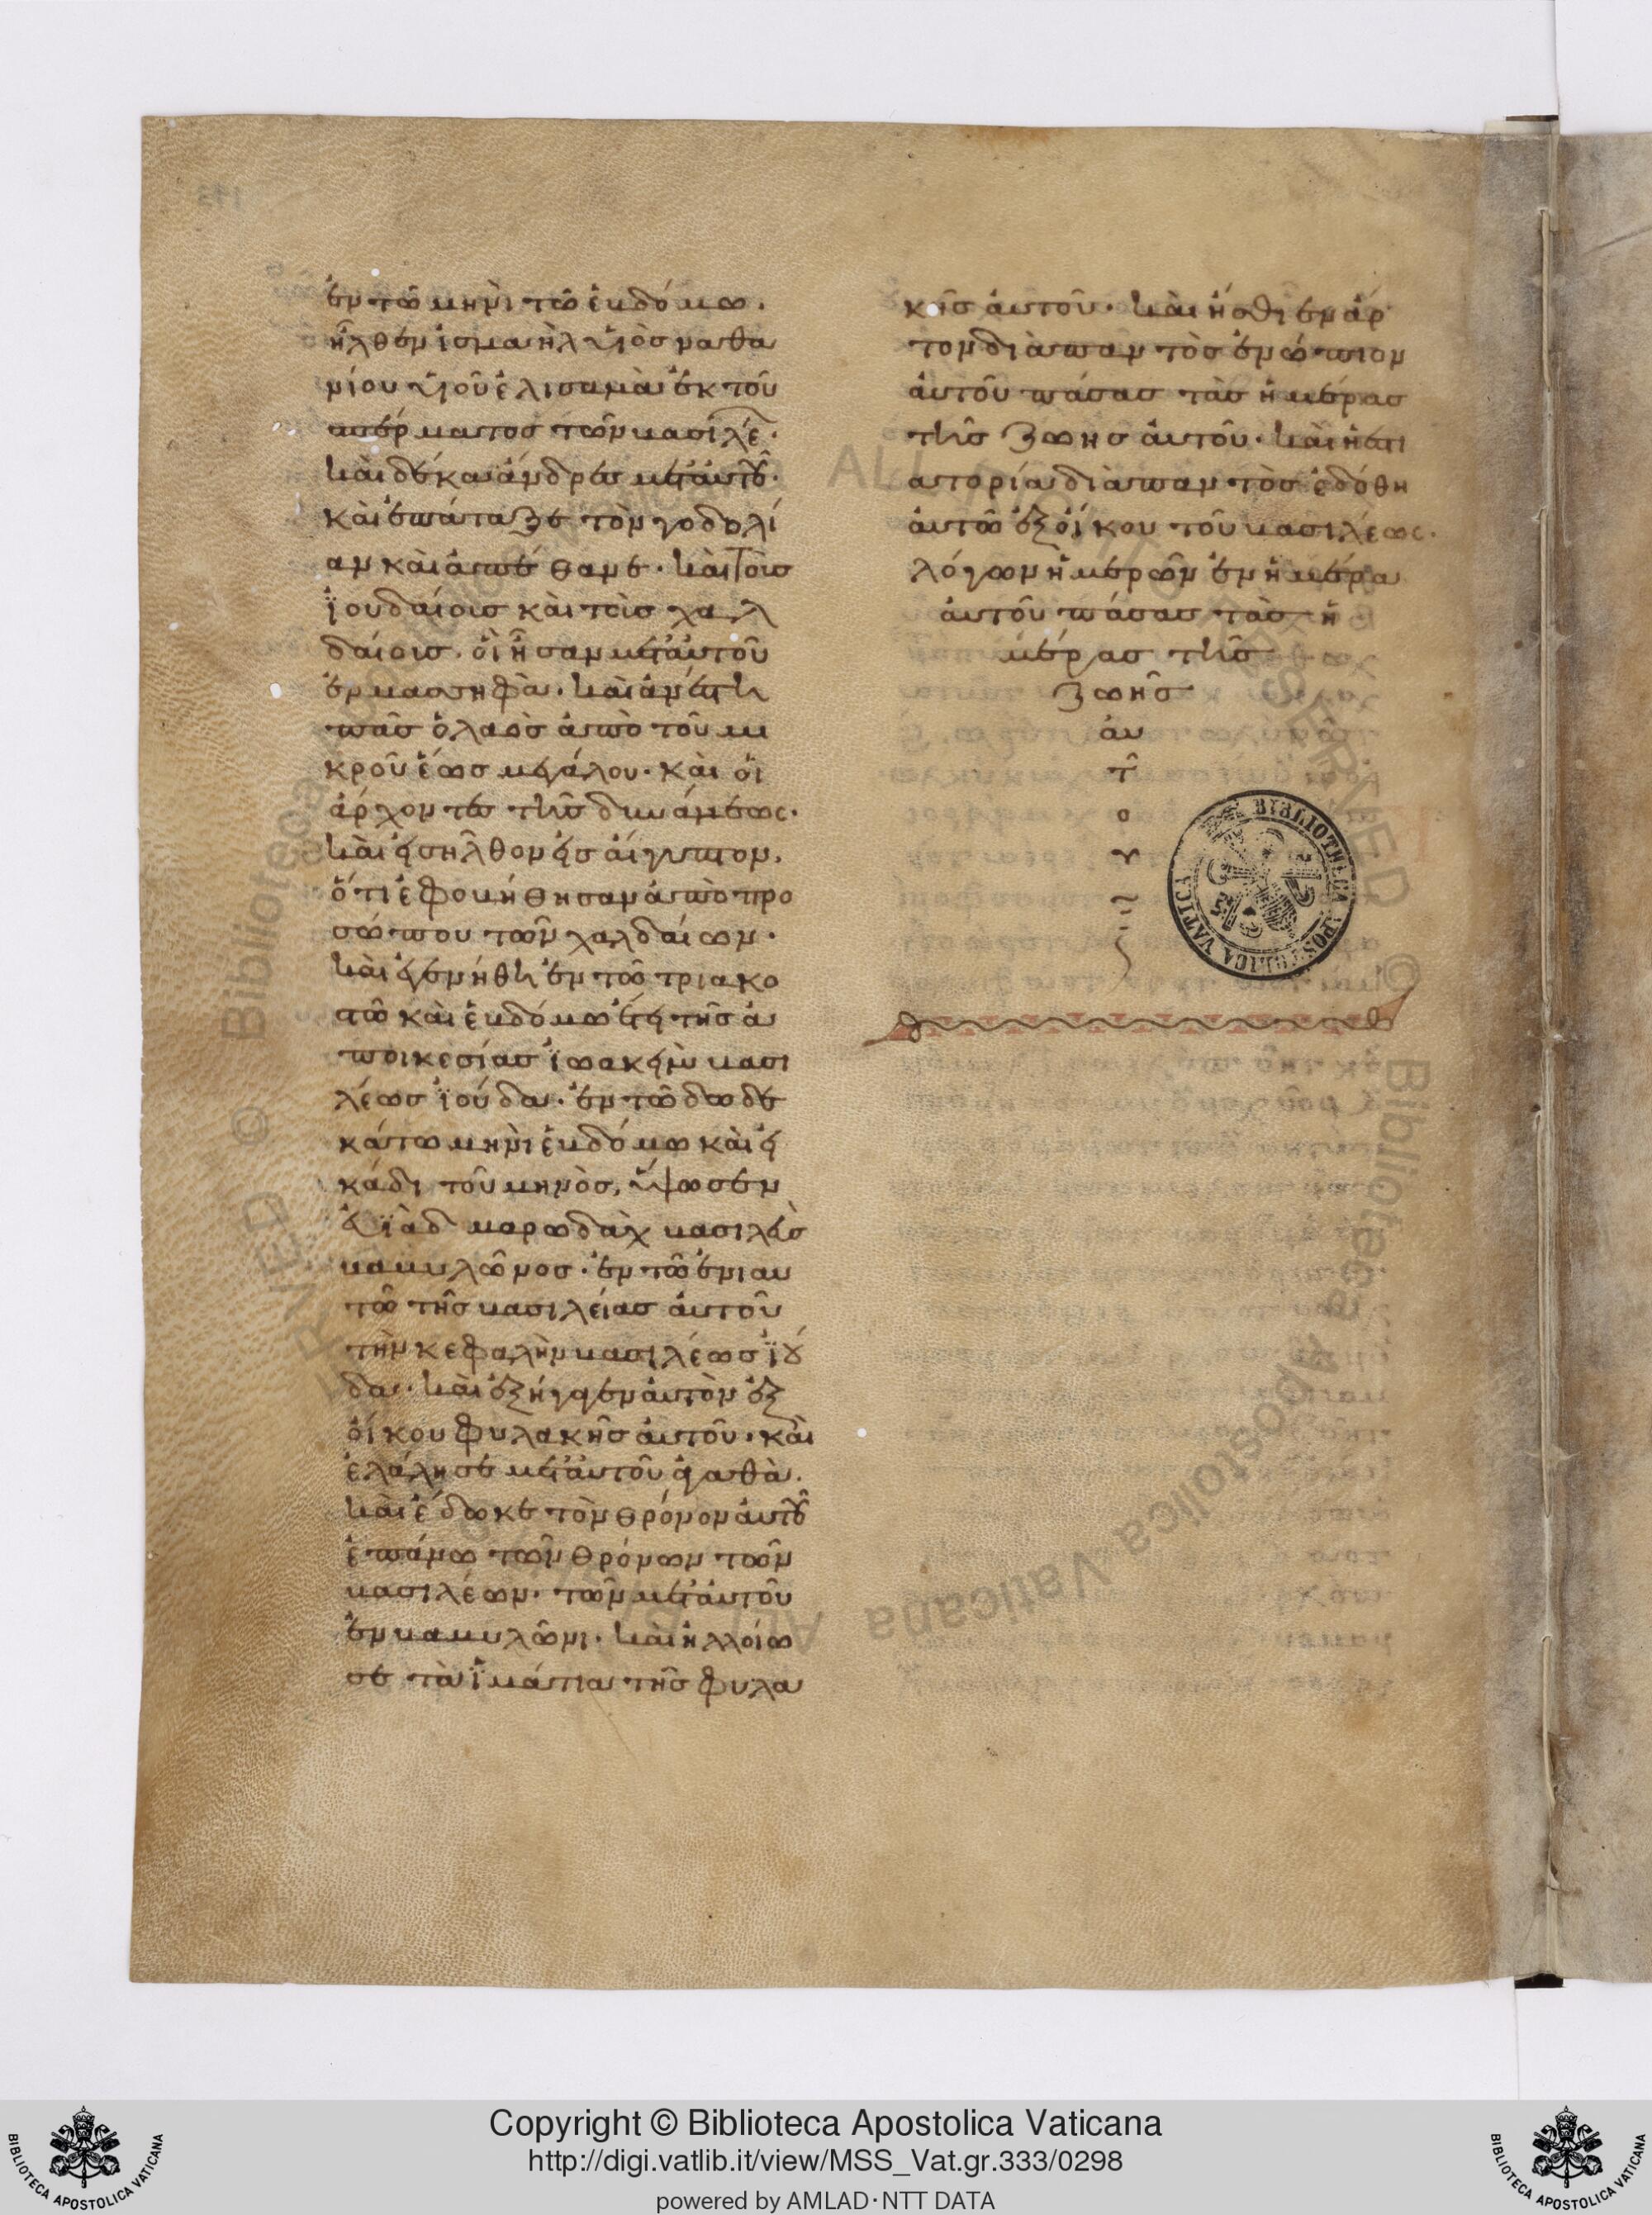 ἐν τῶ μηνὶ τῶ ἑβδόμω.
ἦλθεν ἰσμαὴλ υἱὸς ναθα
νίου υἱοῦ ἐλισαμὰ ἐκ τοῦ
σπέρματος τῶν βασιλέ.
καὶ δέκα ἄνδρες μετ' αὐτοῦ.
καὶ ἐπάταξε τὸν γοδολί
αν καὶ ἀπέθανε. καὶ τοὺς
ἰουδαίοις καὶ τοῖς χαλ
δαίοις. οἳ ἦσαν μετ' αὐτοῦ
ἐν μασσηφὰ. καὶ ἀνέστη
πᾶς ὁ λαὸς ἀπὸ τοῦ μι
κροῦ ἕως μεγάλου. καὶ οἱ
ἄρχοντες τῆς δυνάμεως.
καὶ εἰσῆλθον εἰς αἴγυπτον.
ὅτι ἐφοβήθησαν ἀπὸ προ
σώπου τῶν χαλδαίων.
καὶ ἐγενήθη ἐν τῶ τριακο
στῶ καὶ ἑβδόμω ἔτει τῆς ἀ
ποικεσίας ἰωακεὶμ βασι
λέως ἰούδα. ἐν τῶ δωδε
κάτω μηνὶ ἑβδόμω καὶ εἰ
κάδι τοῦ μηνὸς, ὕψωσεν
εὐϊὰδ μαρωδὰχ βασιλεὺς
βαβυλῶνος. ἐν τῶ ἐνιαυ
τῶ τῆς βασιλείας αὐτοῦ
τὴν κεφαλὴν βασιλέως ἰού
δα. καὶ ἐξήγαγεν αὐτὸν ἐξ
οἴκου φυλακῆς αὐτοῦ. καὶ
ἐλάλησε μετ' αὐτοῦ ἀγαθὰ.
καὶ ἔδωκε τὸν θρόνον αὐτοῦ
ἐπάνω τῶν θρόνων τῶν
βασιλέων. τῶν μετ' αὐτοῦ
ἐν βαβυλῶνι. καὶ ἠλλοίω
σε τὰ ἱμάτια τῆς φυλα
κῆς αὐτοῦ. καὶ ἤσθιεν ἄρ
τον διὰ παντὸς ἐνώπιον
αὐτοῦ πάσας τὰς ἡμέρας
τῆς ζωῆς αὐτοῦ. καὶ ἡ ἑστι
ατορία διὰ παντὸς ἐδόθη
αὐτῶ ἐξ οἴκου τοῦ βασιλέως.
λόγων ἡμερῶν ἐν ἡμέρα
αὐτοῦ πάσας τὰς ἡ
μέρας τῆς
ζωῆς
αὐ
τ
ο
υ
BIBLIOTHECA APOSTOLICA VATICA
Copyright © Biblioteca Apostolica Vaticana
http://digi.vatlib.it/view/MSS_Vat.gr.333/0298
powered by AMLAD·NTT DATA